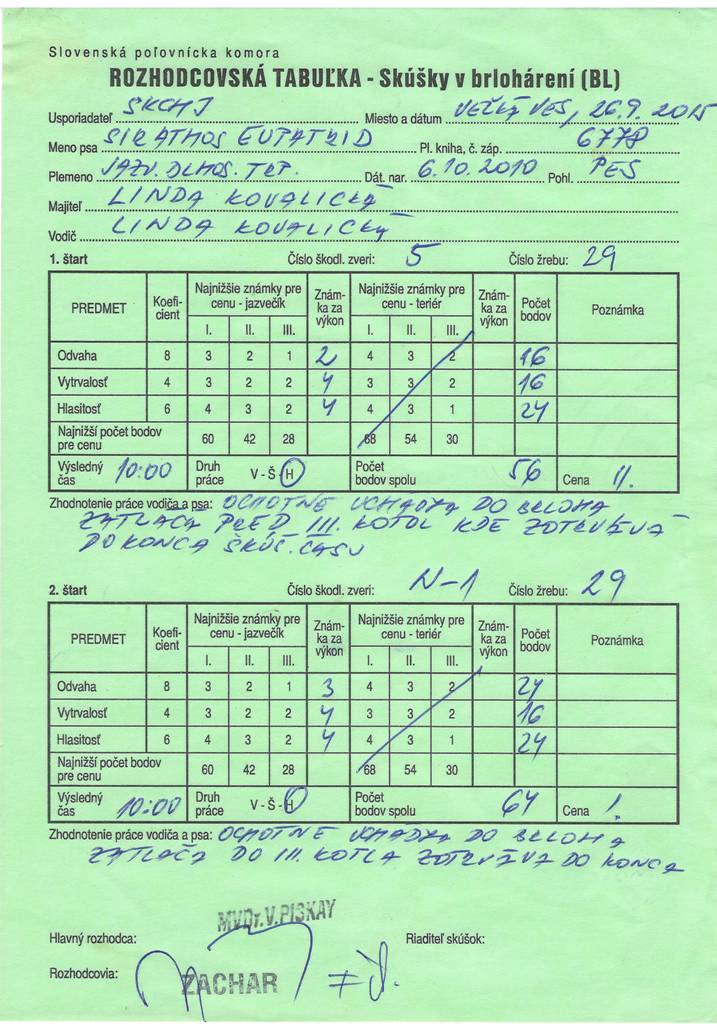 Slovenská poľovnícka komora
ROZHODCOVSKÁ TABUĽKA - Skúšky v brlohárení (BL)
Usporiadateľ SKCHJ Miesto a dátum VEĽKÝ VES, 26.9.2015
Meno psa SIR ATHOS EUPATRID Pl. kniha, č. záp. 6778
Plemeno JAZV. DLHOS. TRP. Dát. nar. 6.10.2010 Pohl. PES
Majiteľ LINDA KOVALICKÁ
Vodič LINDA KOVALICKÁ
1. štart Číslo škodl. zveri: 5 Číslo žrebu: 29
PREDMET Koefi-cient Najnižšie známky pre cenu - jazvečík Znám-ka za výkon Najnižšie známky pre cenu - teriér Znám-ka za výkon Počet bodov Poznámka
I. II. III. I. II. III.
Odvaha 8 3 2 1 2 4 3 2 16
Vytrvalosť 4 3 2 2 4 3 3 2 16
Hlasitosť 6 4 3 2 4 4 3 1 24
Najnižší počet bodov pre cenu 60 42 28 68 54 30
Výsledný čas 10:00 Druh práce V - Š - H Počet bodov spolu 56 Cena II.
Zhodnotenie práce vodiča a psa: OCHOTNE VCHÁDZA DO BRLOHA
ZATLAČÁ PRED III. KOTOL KDE ZOTRVÁVA
DO KONCA SKÚŠ. ČASU
2. štart Číslo škodl. zveri: N-1 Číslo žrebu: 29
PREDMET Koefi-cient Najnižšie známky pre cenu - jazvečík Znám-ka za výkon Najnižšie známky pre cenu - teriér Znám-ka za výkon Počet bodov Poznámka
I. II. III. I. II. III.
Odvaha 8 3 2 1 3 4 3 2 24
Vytrvalosť 4 3 2 2 4 3 3 2 16
Hlasitosť 6 4 3 2 4 4 3 1 24
Najnižší počet bodov pre cenu 60 42 28 68 54 30
Výsledný čas 10:00 Druh práce V - Š - H Počet bodov spolu 64 Cena I.
Zhodnotenie práce vodiča a psa: OCHOTNE VCHÁDZA DO BRLOHA
ZATLAČA DO III. KOTLA ZOTRVÁVA DO KONCA
MVDr. V. PISKAY
Hlavný rozhodca: Riaditeľ skúšok:
Rozhodcovia: ZACHAR